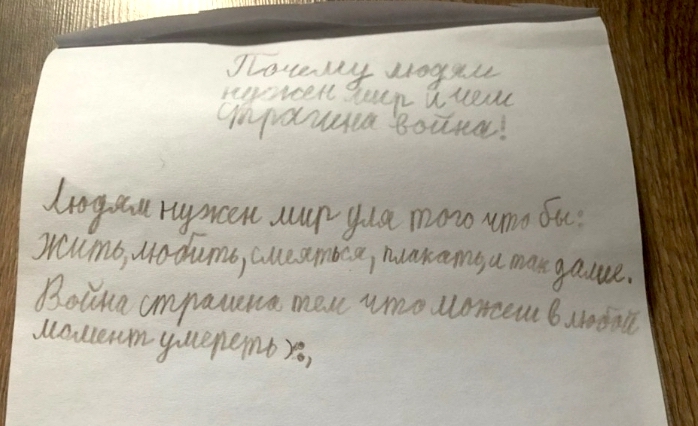 Почему людям
нужен мир и чем
страшна война!
Людям нужен мир для того что бы:
жить, любить, смеяться, плакать, и так далие.
Война страшена тем что можеш в любой
момент умереть